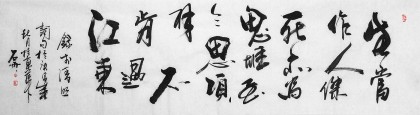 生當
作人傑
死亦為
鬼雄至
今思項
羽不
肯過
江東
錄李清照